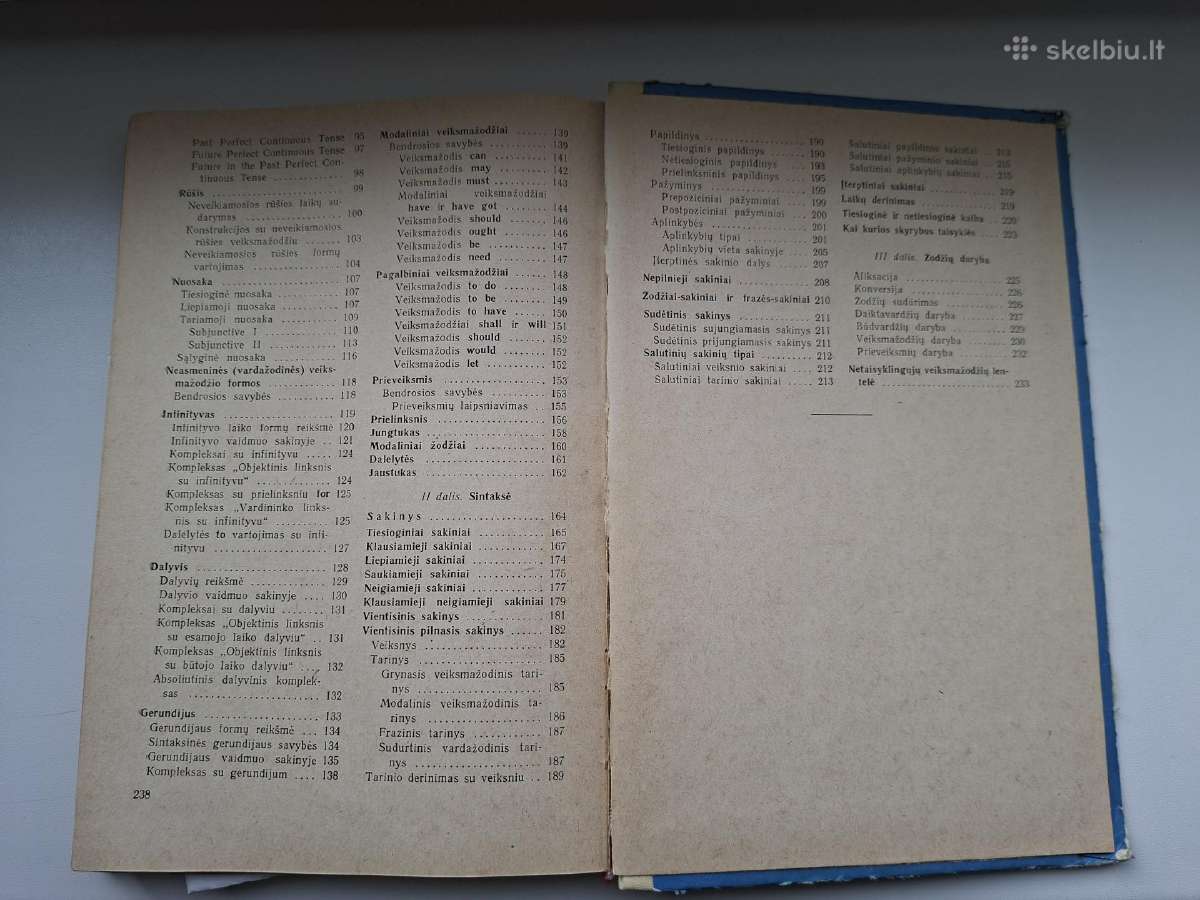 skelbiu.lt
Past Perfect Continuous Tense 95
Future Perfect Continuous Tense 97
Future in the Past Perfect Con-
tinuous Tense .............. 98
Rūšis .................... 99
Neveikiamosios rūšies laikų su-
darymas ................ 100
Konstrukcijos su neveikiamosios
rūšies veiksmažodžiu ....... 103
Neveikiamosios rūšies formų
vartojimas .............. 104
Nuosaka .................. 107
Tiesioginė nuosaka .......... 107
Liepiamoji nuosaka .......... 107
Tariamoji nuosaka .......... 109
Subjunctive I ............ 110
Subjunctive II ............ 113
Sąlyginė nuosaka .......... 116
Neasmeninės (vardažodinės) veiks-
mažodžio formos .......... 118
Bendrosios savybės .......... 118
Infinityvas ................ 119
Infinityvo laiko formų reikšmė 120
Infinityvo vaidmuo sakinyje .. 121
Kompleksai su infinityvu .... 124
Kompleksas „Objektinis linksnis
su infinityvu“ ............ 124
Kompleksas su prielinksniu for 125
Kompleksas „Vardininko links-
nis su infinityvu“ .......... 125
Dalelytės to vartojimas su infi-
nityvu .................. 127
Dalyvis .................... 128
Dalyvių reikšmė ............ 129
Dalyvio vaidmuo sakinyje .... 130
Kompleksai su dalyviu ........ 131
Kompleksas „Objektinis linksnis
su esamojo laiko dalyviu“ .. 131
Kompleksas „Objektinis linksnis
su būtojo laiko dalyviu“ .... 132
Absoliutinis dalyvinis komplek-
sas .................... 132
Gerundijus ................ 133
Gerundijaus formų reikšmė ... 134
Sintaksinės gerundijaus savybės 134
Gerundijaus vaidmuo sakinyje 135
Kompleksas su gerundijum .... 138
238
Modaliniai veiksmažodžiai ...... 139
Bendrosios savybės .......... 139
Veiksmažodis can .......... 141
Veiksmažodis may .......... 142
Veiksmažodis must .......... 143
Modaliniai veiksmažodžiai
have ir have got .......... 144
Veiksmažodis should ........ 146
Veiksmažodis ought ........ 146
Veiksmažodis be .......... 147
Veiksmažodis need .......... 147
Pagalbiniai veiksmažodžiai ...... 148
Veiksmažodis to do ........ 148
Veiksmažodis to be ........ 149
Veiksmažodis to have ...... 150
Veiksmažodžiai shall ir will 151
Veiksmažodis should ........ 152
Veiksmažodis would ........ 152
Veiksmažodis let .......... 152
Prieveiksmis ................ 153
Bendrosios savybės .......... 153
Prieveiksmių laipsniavimas .... 155
Prielinksnis ................ 156
Jungtukas .................. 158
Modaliniai žodžiai .......... 160
Dalelytės .................. 161
Jaustukas .................. 162
II dalis. Sintaksė
Sakinys .................... 164
Tiesioginiai sakiniai .......... 165
Klausiamieji sakiniai .......... 167
Liepiamieji sakiniai .......... 174
Šaukiamieji sakiniai .......... 175
Neigiamieji sakiniai .......... 177
Klausiamieji neigiamieji sakiniai 179
Vientisinis sakinys .......... 181
Vientisinis pilnasis sakinys ...... 182
Veiksnys .................. 182
Tarinys .................. 185
Grynasis veiksmažodinis tari-
nys .................. 185
Modalinis veiksmažodinis ta-
rinys .................. 186
Frazinis tarinys ............ 187
Sudurtinis vardažodinis tari-
nys .................. 187
Tarinio derinimas su veiksniu .. 189
Papildinys ................ 190
Tiesioginis papildinys ...... 190
Netiesioginis papildinys .... 193
Prielinksninis papildinys .... 195
Pažyminys ................ 199
Prepoziciniai pažyminiai .... 199
Postpoziciniai pažyminiai .... 200
Aplinkybės ................ 201
Aplinkybių tipai .......... 201
Aplinkybių vieta sakinyje ... 205
Įterptinės sakinio dalys ...... 207
Nepilnieji sakiniai .......... 208
Žodžiai-sakiniai ir frazės-sakiniai 210
Sudėtinis sakinys .......... 211
Sudėtinis sujungiamasis sakinys 211
Sudėtinis prijungiamasis sakinys 211
Šalutinių sakinių tipai ........ 212
Šalutiniai veiksnio sakiniai .... 212
Šalutiniai tarinio sakiniai .... 213
Šalutiniai papildinio sakiniai .... 213
Šalutiniai pažyminio sakiniai .... 215
Šalutiniai aplinkybių sakiniai .... 215
Įterptiniai sakiniai .......... 219
Laikų derinimas ............ 219
Tiesioginė ir netiesioginė kalba .. 220
Kai kurios skyrybos taisyklės .... 223
III dalis. Žodžių daryba
Afiksacija ................ 225
Konversija ................ 226
Žodžių sudūrimas .......... 226
Daiktavardžių daryba ........ 227
Būdvardžių daryba .......... 229
Veiksmažodžių daryba ........ 230
Prieveiksmių daryba ........ 232
Netaisyklingųjų veiksmažodžių len-
telė .................... 233